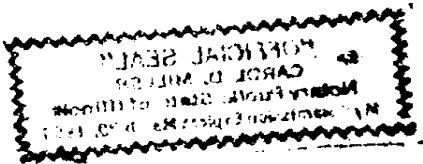 "OFFICIAL SEAL"
CAROL D. MILLER
Notary Public, State of Illinois
My Commission Expires